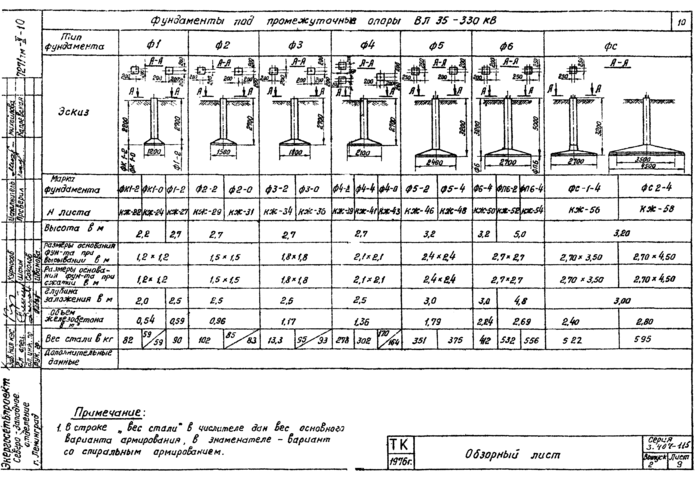 Фундаменты под промежуточные опоры ВЛ 35-330 кВ
10
Тип фундамента Ф1 Ф2 Ф3 Ф4 Ф5 Ф6 ФС
Эскиз
А-А А-А А-А А-А А-А А-А А-А
1200 1500 1800 2100 2400 2700 2700 3500
4500
Марка фундамента ФК1-2 ФК1-0 Ф1-2 Ф2-2 Ф2-0 Ф3-2 Ф3-0 Ф4-2 Ф4-4 Ф4-0 Ф5-2 Ф5-4 Ф6-4 ФП6-2 ФП6-4 ФС-1-4 ФС2-4
N листа КЖ-22 КЖ-24 КЖ-27 КЖ-29 КЖ-31 КЖ-34 КЖ-36 КЖ-39 КЖ-41 КЖ-43 КЖ-46 КЖ-48 КЖ-50 КЖ-52 КЖ-54 КЖ-56 КЖ-58
Высота в м 2,2 2,7 2,7 2,7 2,7 3,2 3,2 5,0 3,20
Размеры основания фун-та при вырывании в м 1,2×1,2 1,5×1,5 1,8×1,8 2,1×2,1 2,4×2,4 2,7×2,7 2,70×3,50 2,70×4,50
Размеры основания фун-та при сжатии в м 1,2×1,2 1,5×1,5 1,8×1,8 2,1×2,1 2,4×2,4 2,7×2,7 2,70×3,50 2,70×4,50
Глубина заложения в м 2,0 2,5 2,5 2,5 2,5 3,0 3,0 4,8 3,00
Объем железобетона в м³ 0,54 0,59 0,96 1,17 1,36 1,79 2,24 2,69 2,40 2,80
Вес стали в кг 82 59/59 90 102 85/83 13,3 95/93 278 302 170/164 351 375 532 556 522 595
Дополнительные данные
Примечание:
1. В строке „вес стали" в числителе дан вес основного
варианта армирования, в знаменателе - вариант
со спиральным армированием.
Энергосетьпроект
Северо-Западное
отделение
г. Ленинград
ТК
1976г.
Обзорный лист
Серия
3.407-115
Выпуск 2
Лист 9